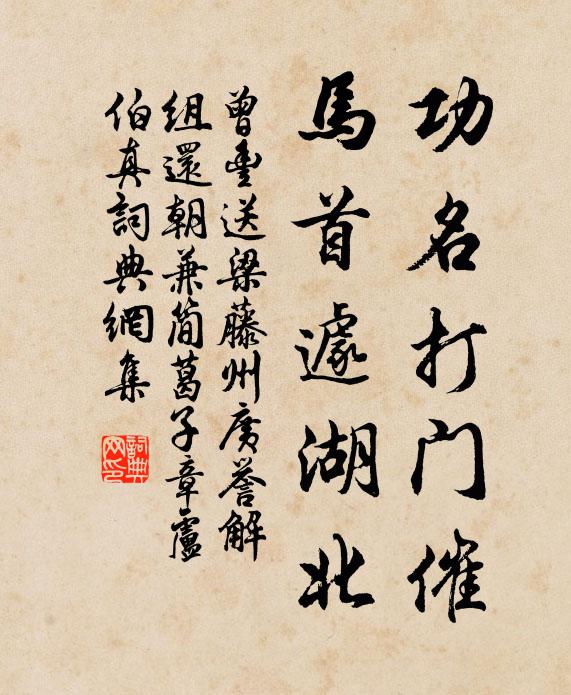 功名打門催
馬首遽湖北
曾豐送梁藤州廣譽解
組還朝兼簡葛子章盧
伯真詞典網集
詞典网印